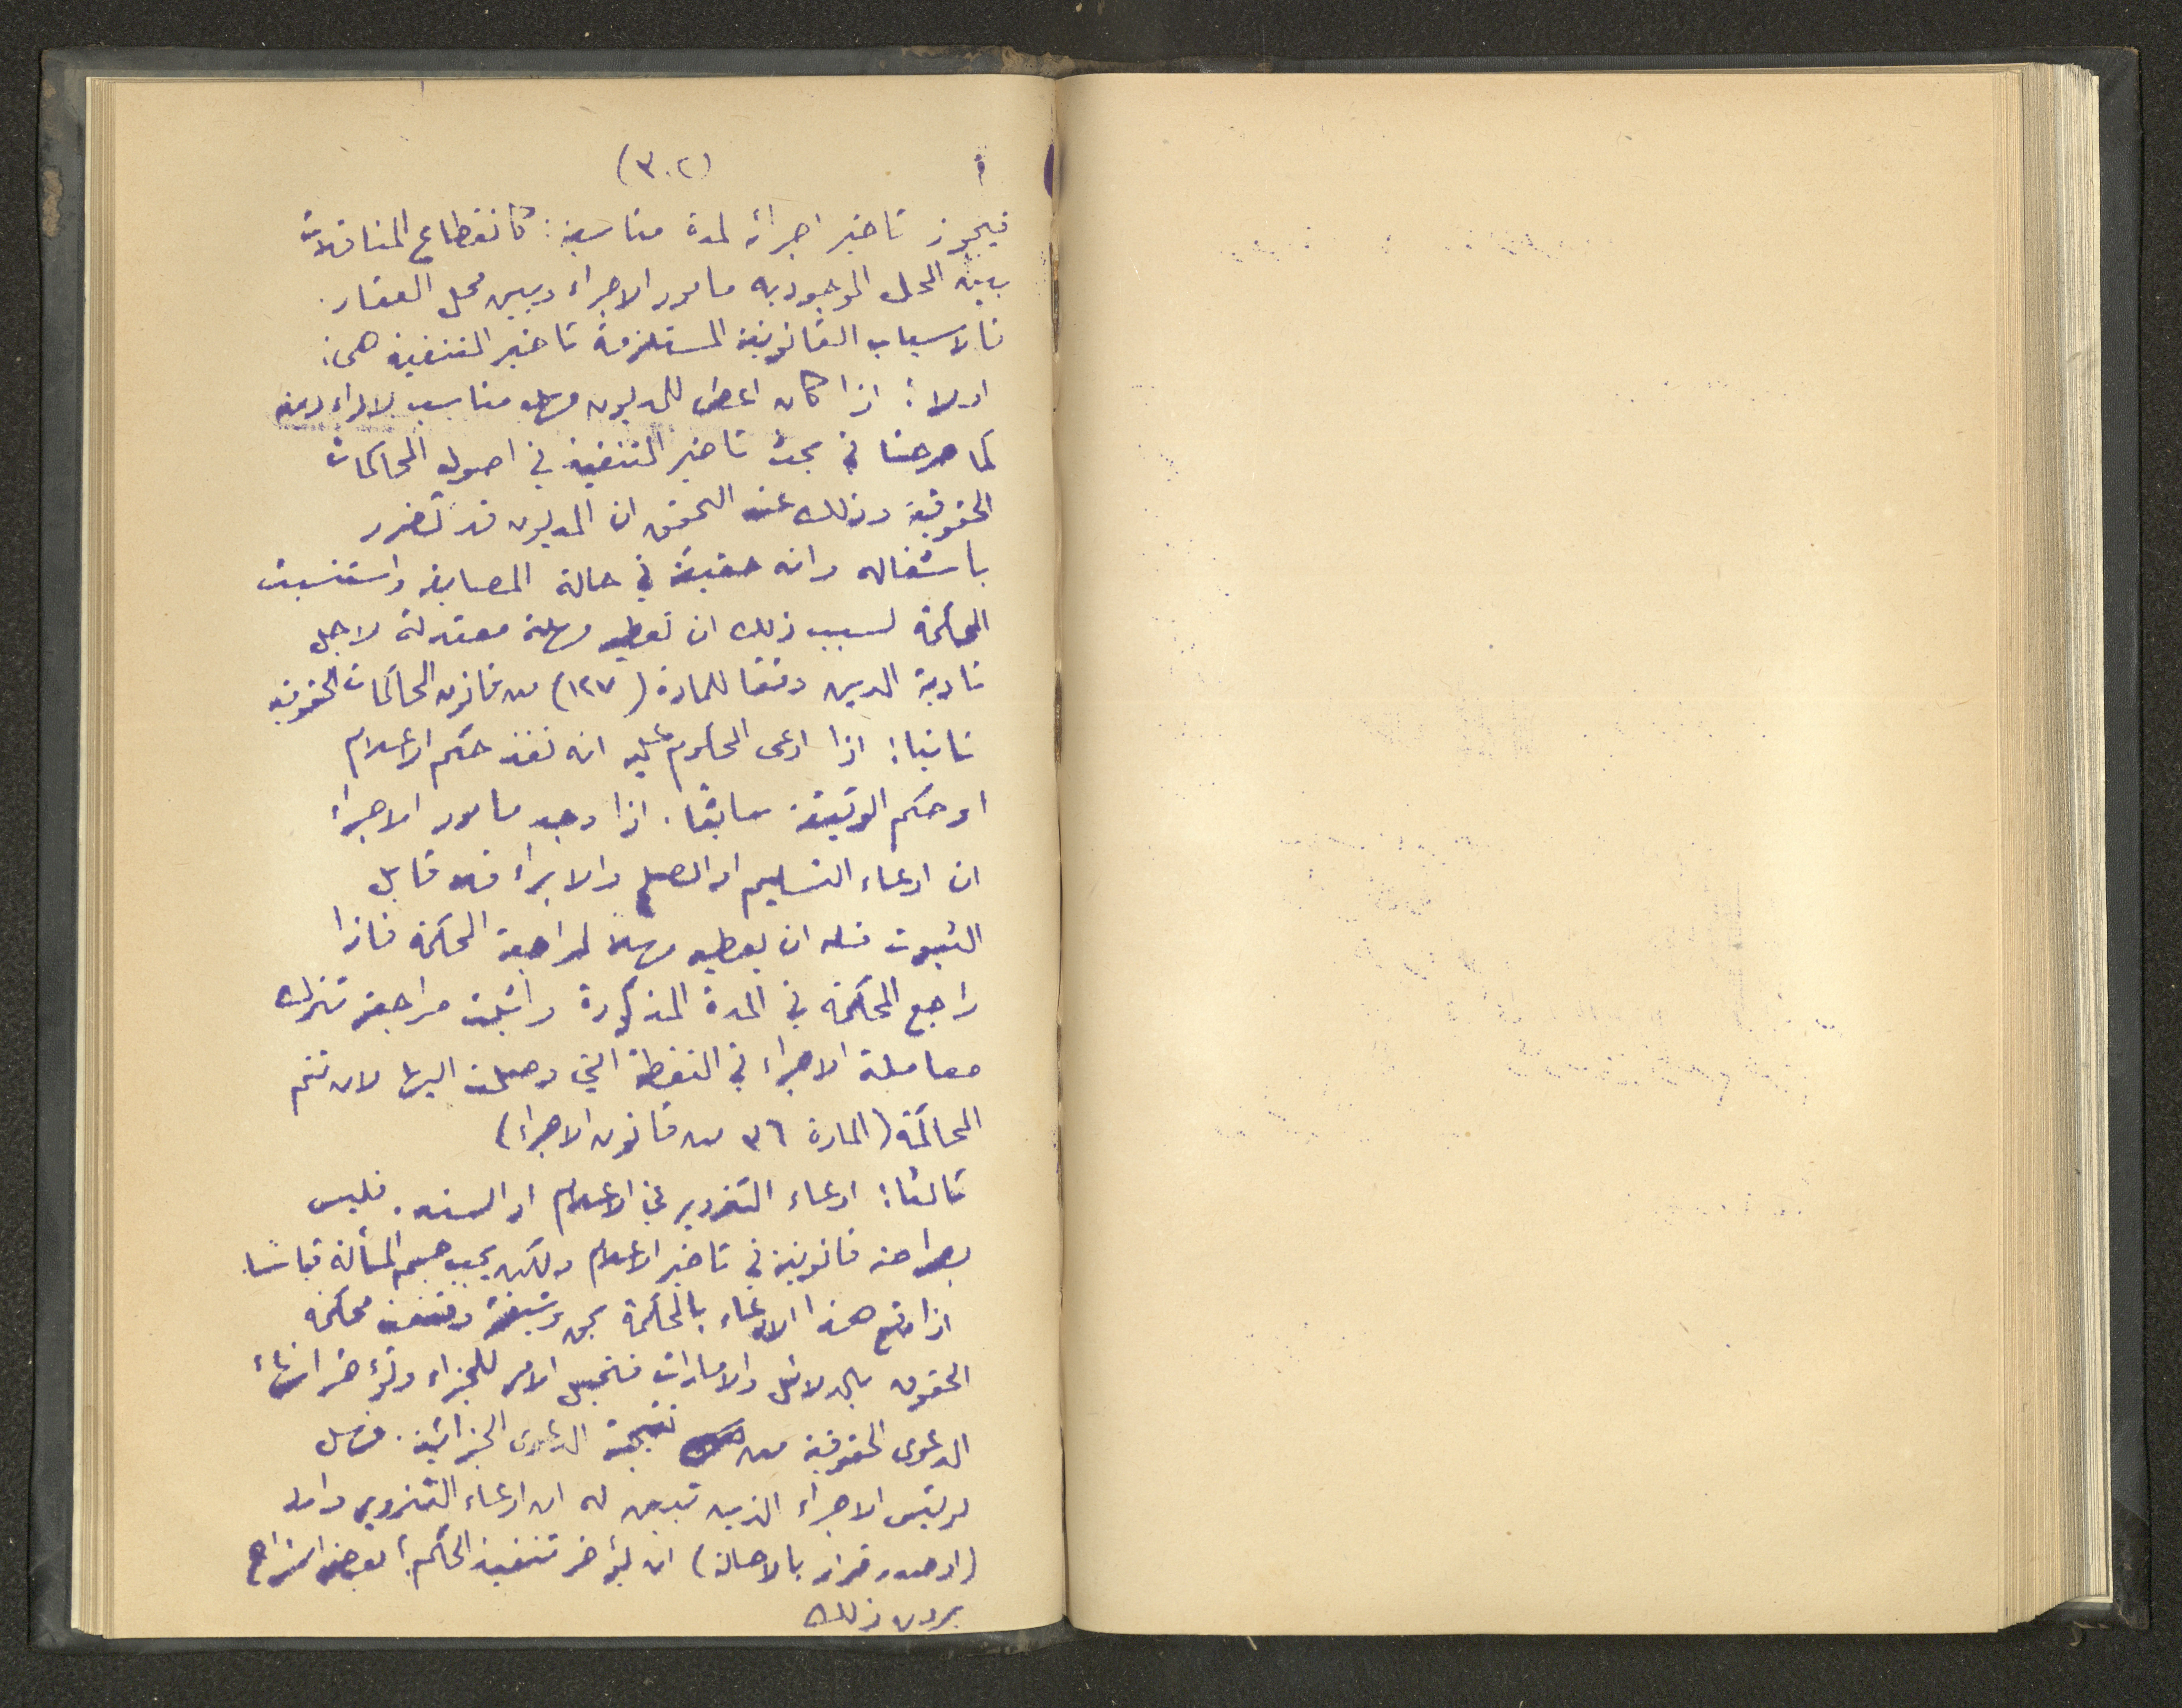 (٣٠٢)
فيجوز تاخير اجرائه لمدة مناسبة: كانقطاع المناقلات
بين المحل الموجود به مامور الاجراء وبين محل العقار.
فالاسباب القانونية المستلزمة تاخير التنفيذ هي:
اولا: اذا كان اعطى للمديون مهلا مناسب لاداء دينه
كما صرحنا في بحث تاخير التنفيذ في اصول المحاكمات
الحقوقية وذلك عند التحقق ان المديون قد تضرر
باشغاله وانه حقيقة في حالة المصايقة واستنسبت
المحكمة لسبب ذلك ان تعطيه مهلة معتدلة لاجل
تادية الدين وفقا للمادة (١٢٧) من قانون المحاكمات الحقوقية
ثانيا: اذا ادعى المحكوم عليه انه نفذ حكم الاعلام
او حكم الوثيقة سابقا. اذا وجد مامور الاجراء
ان ادعاء التسليم او الصلح والابراء قابل
الثبوت فله ان يعطيه مهلا لمراجعة المحكمة فاذا
راجع المحكمة في المدة المذكورة واثبت مراجعته تترك
معاملة الاجراء في النقطة التي وصلت اليها لان تتم
المحاكمة (المادة ٣٦ من قانون الاجراء)
ثالثا: ادعاء التزوير في الاعلام او السند. فليس
بصراحة قانونية في تاخير الاعلام ولكن يجب حسم المسألة قياسا.
اذا وقع هذا الادعاء بالمحكمة بحق وثيقة وقنعت محكمة
الحقوق بالدلائل والامارات فتحيل الامر للجزاء وتؤخر انهاء
الدعوى الحقوقية من نتيجة الدعوى الجزائية. فهل
لرئيس الاجراء الذي تبين له ان ادعاء التزوير وارد
(او صدور قرار بالاحالة) ان يؤخر تنفيذ الحكم؛ بعض الشراح
يرون ذلك